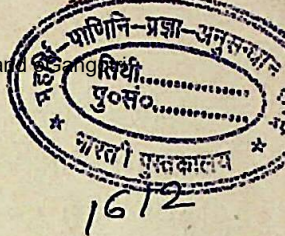 महर्षि-पाणिनि-प्रज्ञा-अनुसन्धान
तिथी..................
पु०सं०..................
भारती पुस्तकालय
1612